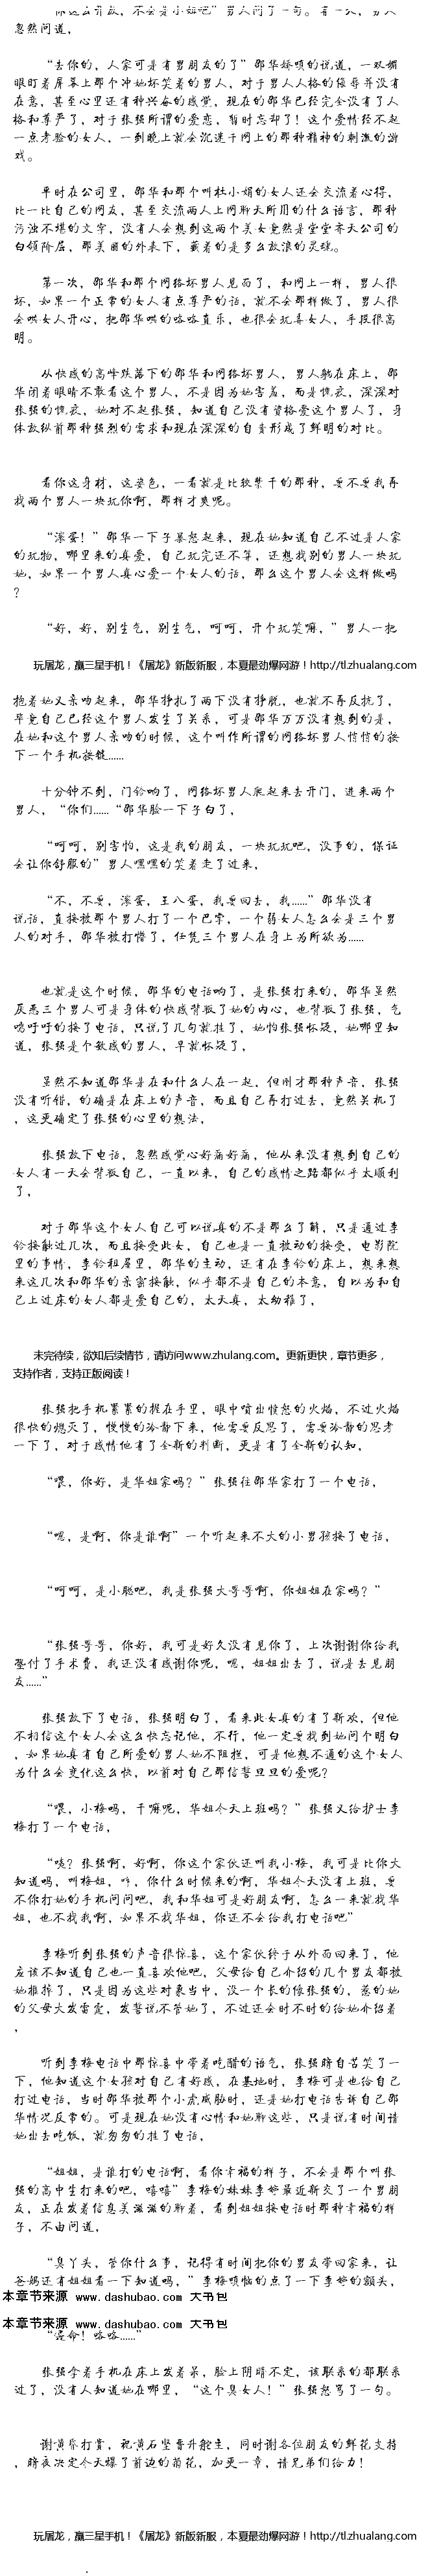 “你这么开放，不会是小姐吧”男人问了一句。有一次，男人
忽然问道，
“去你的，人家可是有男朋友的了”邵华娇嗔的说道，一双媚
眼盯着屏幕上那个冲她坏笑着的男人，对于男人人格的侮辱并没有
在意，甚至心里还有种兴奋的感觉，现在的邵华已经完全没有了人
格和尊严了，对于张强所谓的爱恋，暂时忘却了！这个爱情经不起
一点考验的女人，一到晚上就会沉迷于网上的那种精神的刺激的游
戏。
平时在公司里，邵华和那个叫杜小娟的女人还会交流着心得，
比一比自己的网友，甚至交流两人上网聊天所用的什么语言，那种
污浊不堪的文字，没有人会想到这两个美女竟然是堂堂齐天公司的
白领阶层，那美丽的外表下，藏着的是多么放浪的灵魂。
第一次，邵华和那个网络坏男人见面了，和网上一样，男人很
坏，如果一个正常的女人有点尊严的话，就不会那样做了，男人很
会哄女人开心，把邵华哄的咯咯直乐，也很会玩弄女人，手段很高
明。
从快感的高峰跌落下的邵华和网络坏男人，男人躺在床上，邵
华闭着眼睛不敢看这个男人，不是因为她害羞，而是愧疚，深深对
张强的愧疚，她对不起张强，知道自己没有资格爱这个男人了，身
体放纵前那种强烈的需求和现在深深的自责形成了鲜明的对比。
看你这身材，这姿色，一看就是比较紧干的那种，要不要我再
找两个男人一块玩你啊，那样才爽呢。
“滚蛋！”邵华一下子暴怒起来，现在她知道自己不过是人家
的玩物，哪里来的真爱，自己玩完还不算，还想找别的男人一块玩
她，如果一个男人真心爱一个女人的话，那么这个男人会这样做吗
？
“好，好，别生气，别生气，呵呵，开个玩笑嘛，”男人一把
玩屠龙，赢三星手机！《屠龙》新版新服，本夏最劲爆网游！http://tl.zhualang.com
抱着她又亲吻起来，邵华挣扎了两下没有挣脱，也就不再反抗了，
毕竟自己已经这个男人发生了关系，可是邵华万万没有想到的是，
在她和这个男人亲吻的时候，这个叫作所谓的网络坏男人悄悄的按
下一个手机按键……
十分钟不到，门铃响了，网络坏男人爬起来去开门，进来两个
男人，“你们……“邵华脸一下子白了，
“呵呵，别害怕，这是我的朋友，一块玩玩吧，没事的，保证
会让你舒服的”男人嘿嘿的笑着走了过来，
“不，不要，滚蛋，王八蛋，我要回去，我……”邵华没有
说话，直接被那个男人打了一个巴掌，一个弱女人怎么会是三个男
人的对手，邵华被打懵了，任凭三个男人在身上为所欲为……
也就是这个时候，邵华的电话响了，是张强打来的，邵华虽然
厌恶三个男人可是身体的快感背叛了她的内心，也背叛了张强，气
喘吁吁的接了电话，只说了几句就挂了，她怕张强怀疑，她哪里知
道，张强是个敏感的男人，早就怀疑了，
虽然不知道邵华是在和什么人在一起，但刚才那种声音，张强
没有听错，的确是在床上的声音，而且自己再打过去，竟然关机了
，这更确定了张强的心里的想法，
张强放下电话，忽然感觉心好痛好痛，他从来没有想到自己的
女人有一天会背叛自己，一直以来，自己的感情之路都似乎太顺利
了，
对于邵华这个女人自己可以说真的不是那么了解，只是通过李
铃接触过几次，而且接受此女，自己也是一直被动的接受，电影院
里的事情，李铃租屋里，邵华的主动，还有在李铃的床上，想来想
来这几次和邵华的亲密接触，似乎都不是自己的本意，自以为和自
己上过床的女人都是爱自己的，太天真，太幼稚了，
未完待续，欲知后续情节，请访问www.zhulang.com。更新更快，章节更多，
支持作者，支持正版阅读！
张强把手机紧紧的握在手里，眼中喷出愤怒的火焰，不过火焰
很快的熄灭了，慢慢的冷静下来，他需要反思了，需要冷静的思考
一下了，对于感情他有了全新的判断，更是有了全新的认知，
“喂，你好，是华姐家吗？”张强往邵华家打了一个电话，
“嗯，是啊，你是谁啊”一个听起来不大的小男孩接了电话，
“呵呵，是小聪吧，我是张强大哥哥啊，你姐姐在家吗？”
“张强哥哥，你好，我可是好久没有见你了，上次谢谢你给我
垫付了手术费，我还没有感谢你呢，嗯，姐姐出去了，说是去见朋
友……”
张强放下了电话，张强明白了，看来此女真的有了新欢，但他
不相信这个女人会这么快忘记他，不行，他一定要找到她问个明白
，如果她真有自己所爱的男人她不阻拦，可是他想不通的这个女人
为什么会变化这么快，以前对自己那信誓旦旦的爱呢？
“喂，小梅吗，干嘛呢，华姐今天上班吗？”张强又给护士李
梅打了一个电话，
“咦？张强啊，好啊，你这个家伙还叫我小梅，我可是比你大
知道吗，叫梅姐，哼，你什么时候来的啊，华姐今天没有上班，要
不你打她的手机问问吧，我和华姐可是好朋友啊，怎么一来就找华
姐，也不找我啊，如果不找华姐，你还不会给我打电话吧”
李梅听到张强的声音很惊喜，这个家伙终于从外面回来了，他
应该不知道自己也一直喜欢他吧，父母给自己介绍的几个男友都被
她推掉了，只是因为这些对象当中，没一个长的像张强的，惹的她
的父母大发雷霆，发誓说不管她了，不过还会时不时的给她介绍着
，
听到李梅电话中那惊喜中带着吃醋的语气，张强暗自苦笑了一
下，他知道这个女孩对自己有好感，在基地时，李梅可是也给自己
打过电话，当时邵华被那个小虎威胁时，还是她打电话告诉自己邵
华情况反常的。可是现在她没有心情和她聊这些，只是说有时间请
她出去吃饭，就匆匆的挂了电话，
“姐姐，是谁打的电话啊，看你幸福的样子，不会是那个叫张
强的高中生打来的吧，嘻嘻”李梅的妹妹李婷最近新交了一个男朋
友，正在发着信息美滋滋的聊着，看到姐姐接电话时那种幸福的样
子，不由问道，
“臭丫头，管你什么事，记得有时间把你的男友带回家来，让
爸妈还有姐姐看一下知道吗，”李梅嗔恼的点了一下李婷的额头，
本章节来源 www.dashubao.com 大书包
本章节来源 www.dashubao.com 大书包
“遵命！咯咯……”
张强拿着手机在床上发着呆，脸上阴晴不定，该联系的都联系
过了，没有人知道她在哪里，“这个臭女人！”张强怒骂了一句。
谢黄昏打赏，祝黄石坚晋升舵主，同时谢各位朋友的鲜花支持
，暗夜决定今天爆了前边的菊花，加更一章，请兄弟们给力！
玩屠龙，赢三星手机！《屠龙》新版新服，本夏最劲爆网游！http://tl.zhualang.com